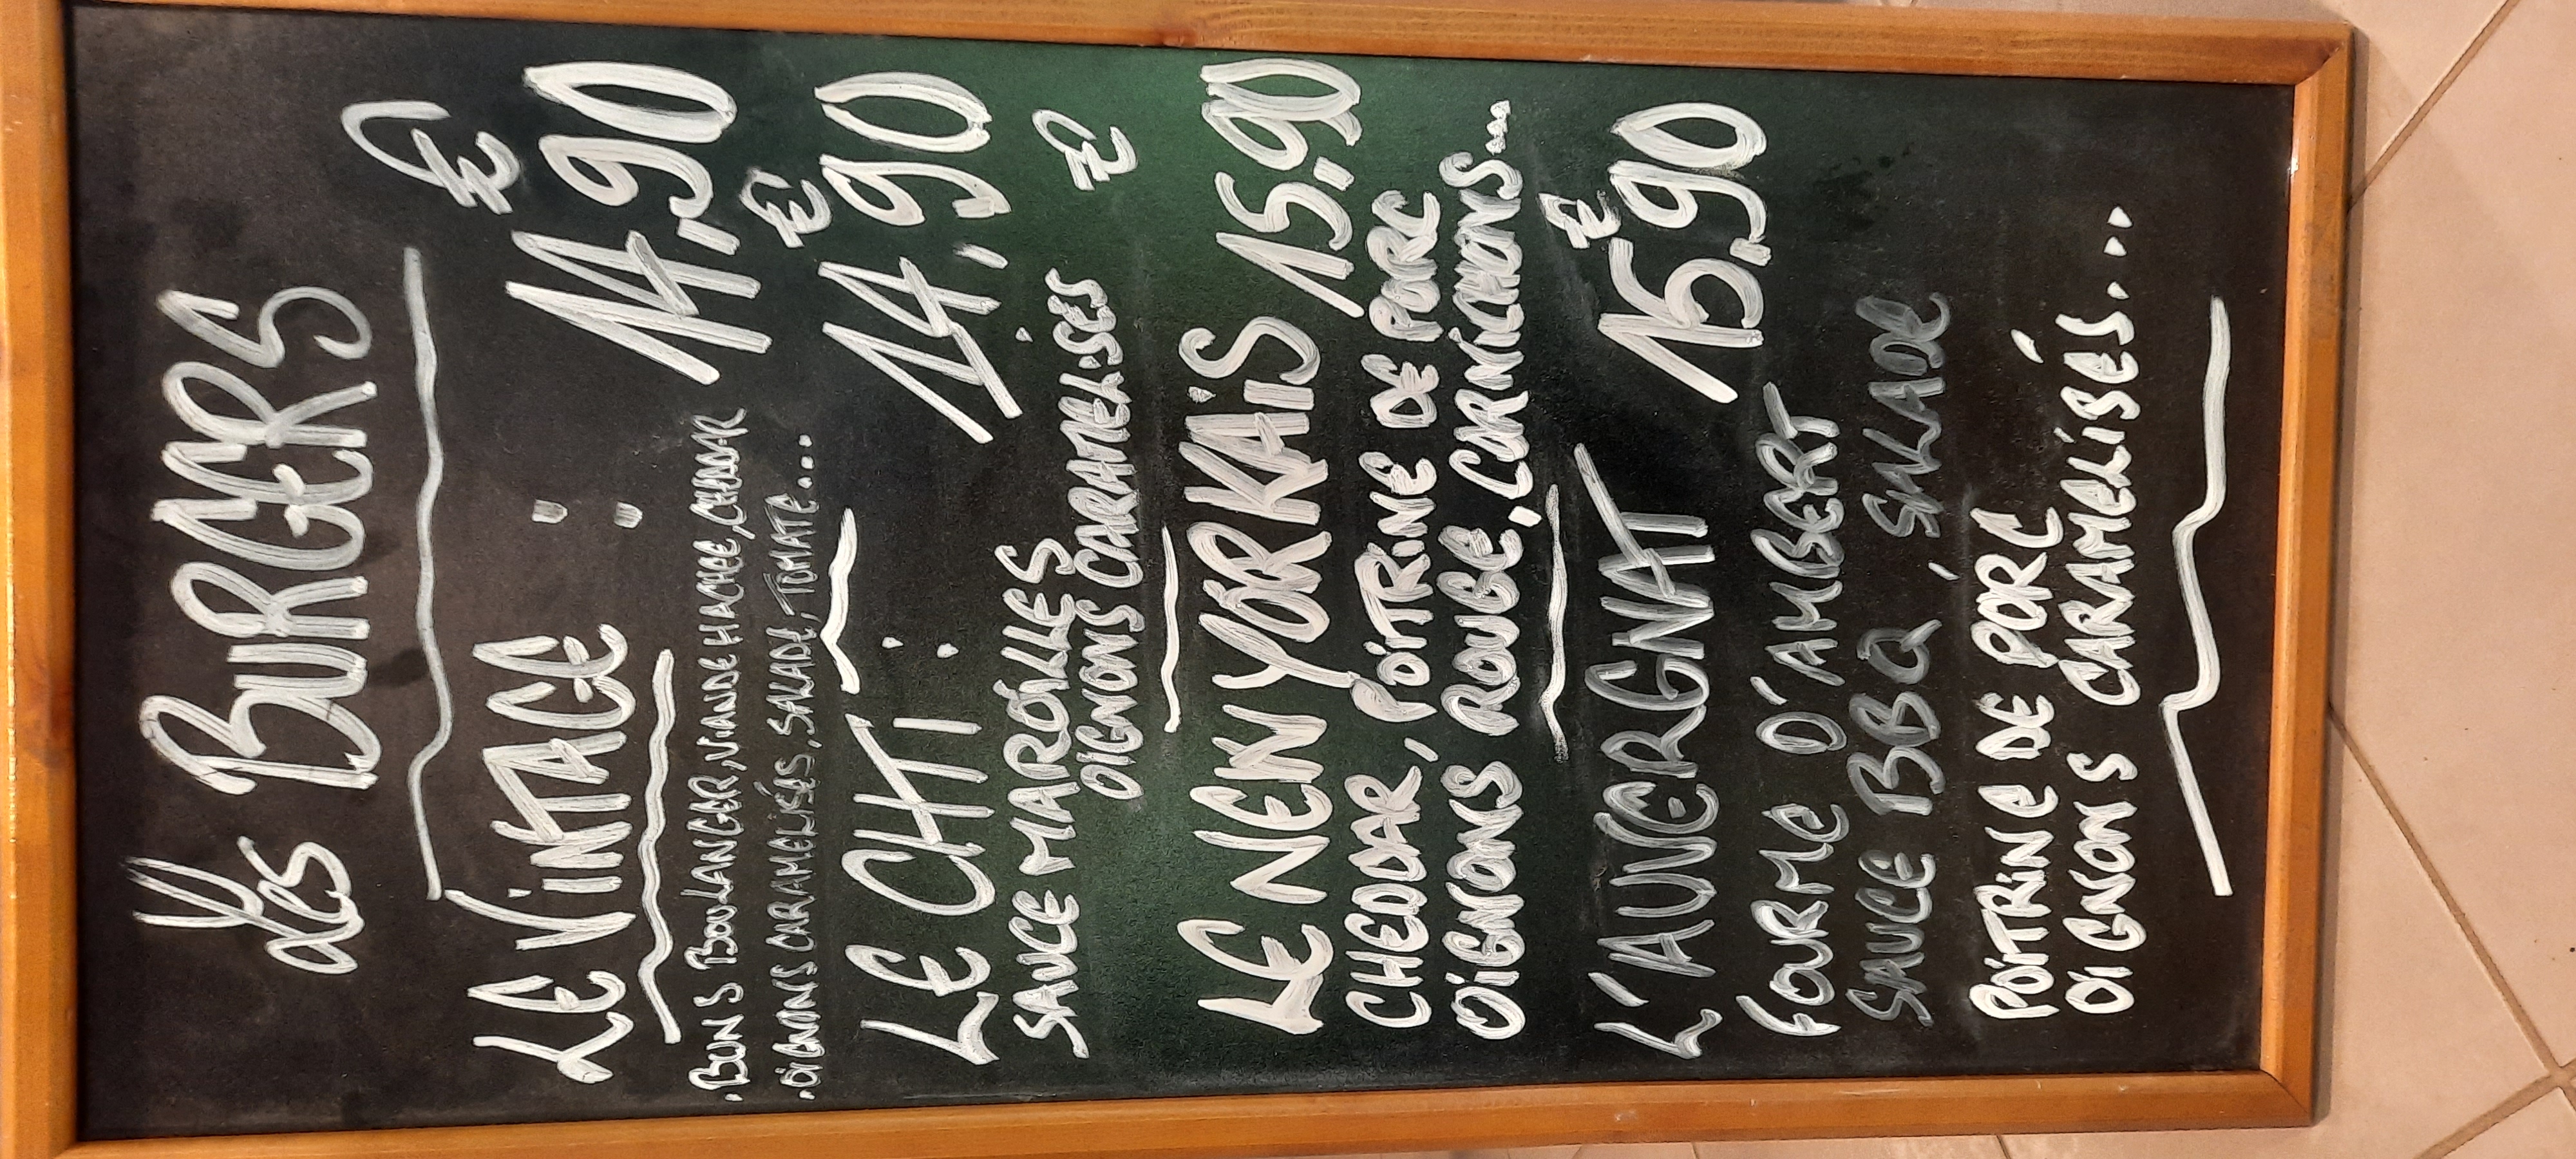 Les BURGERS
€
LE VINTAGE : 14.90
. BUN S BOULANGER, VIANDE HACHEE, CHEDDAR
. OIGNONS CARAMELISÉS, SALADE, TOMATE...
€
LE CHTI : 14.90
SAUCE MAROILLES
OIGNONS CARAMELISÉS
€
LE NEW YORKAIS 15.90
CHEDDAR, POITRINE DE PORC
OIGNONS ROUGE, CORNICHONS...
€
L'AUVERGNAT 15.90
FOURME D'AMBERT
SAUCE BBQ, SALADE
POITRINE DE PORC
OIGNONS CARAMELISÉS...